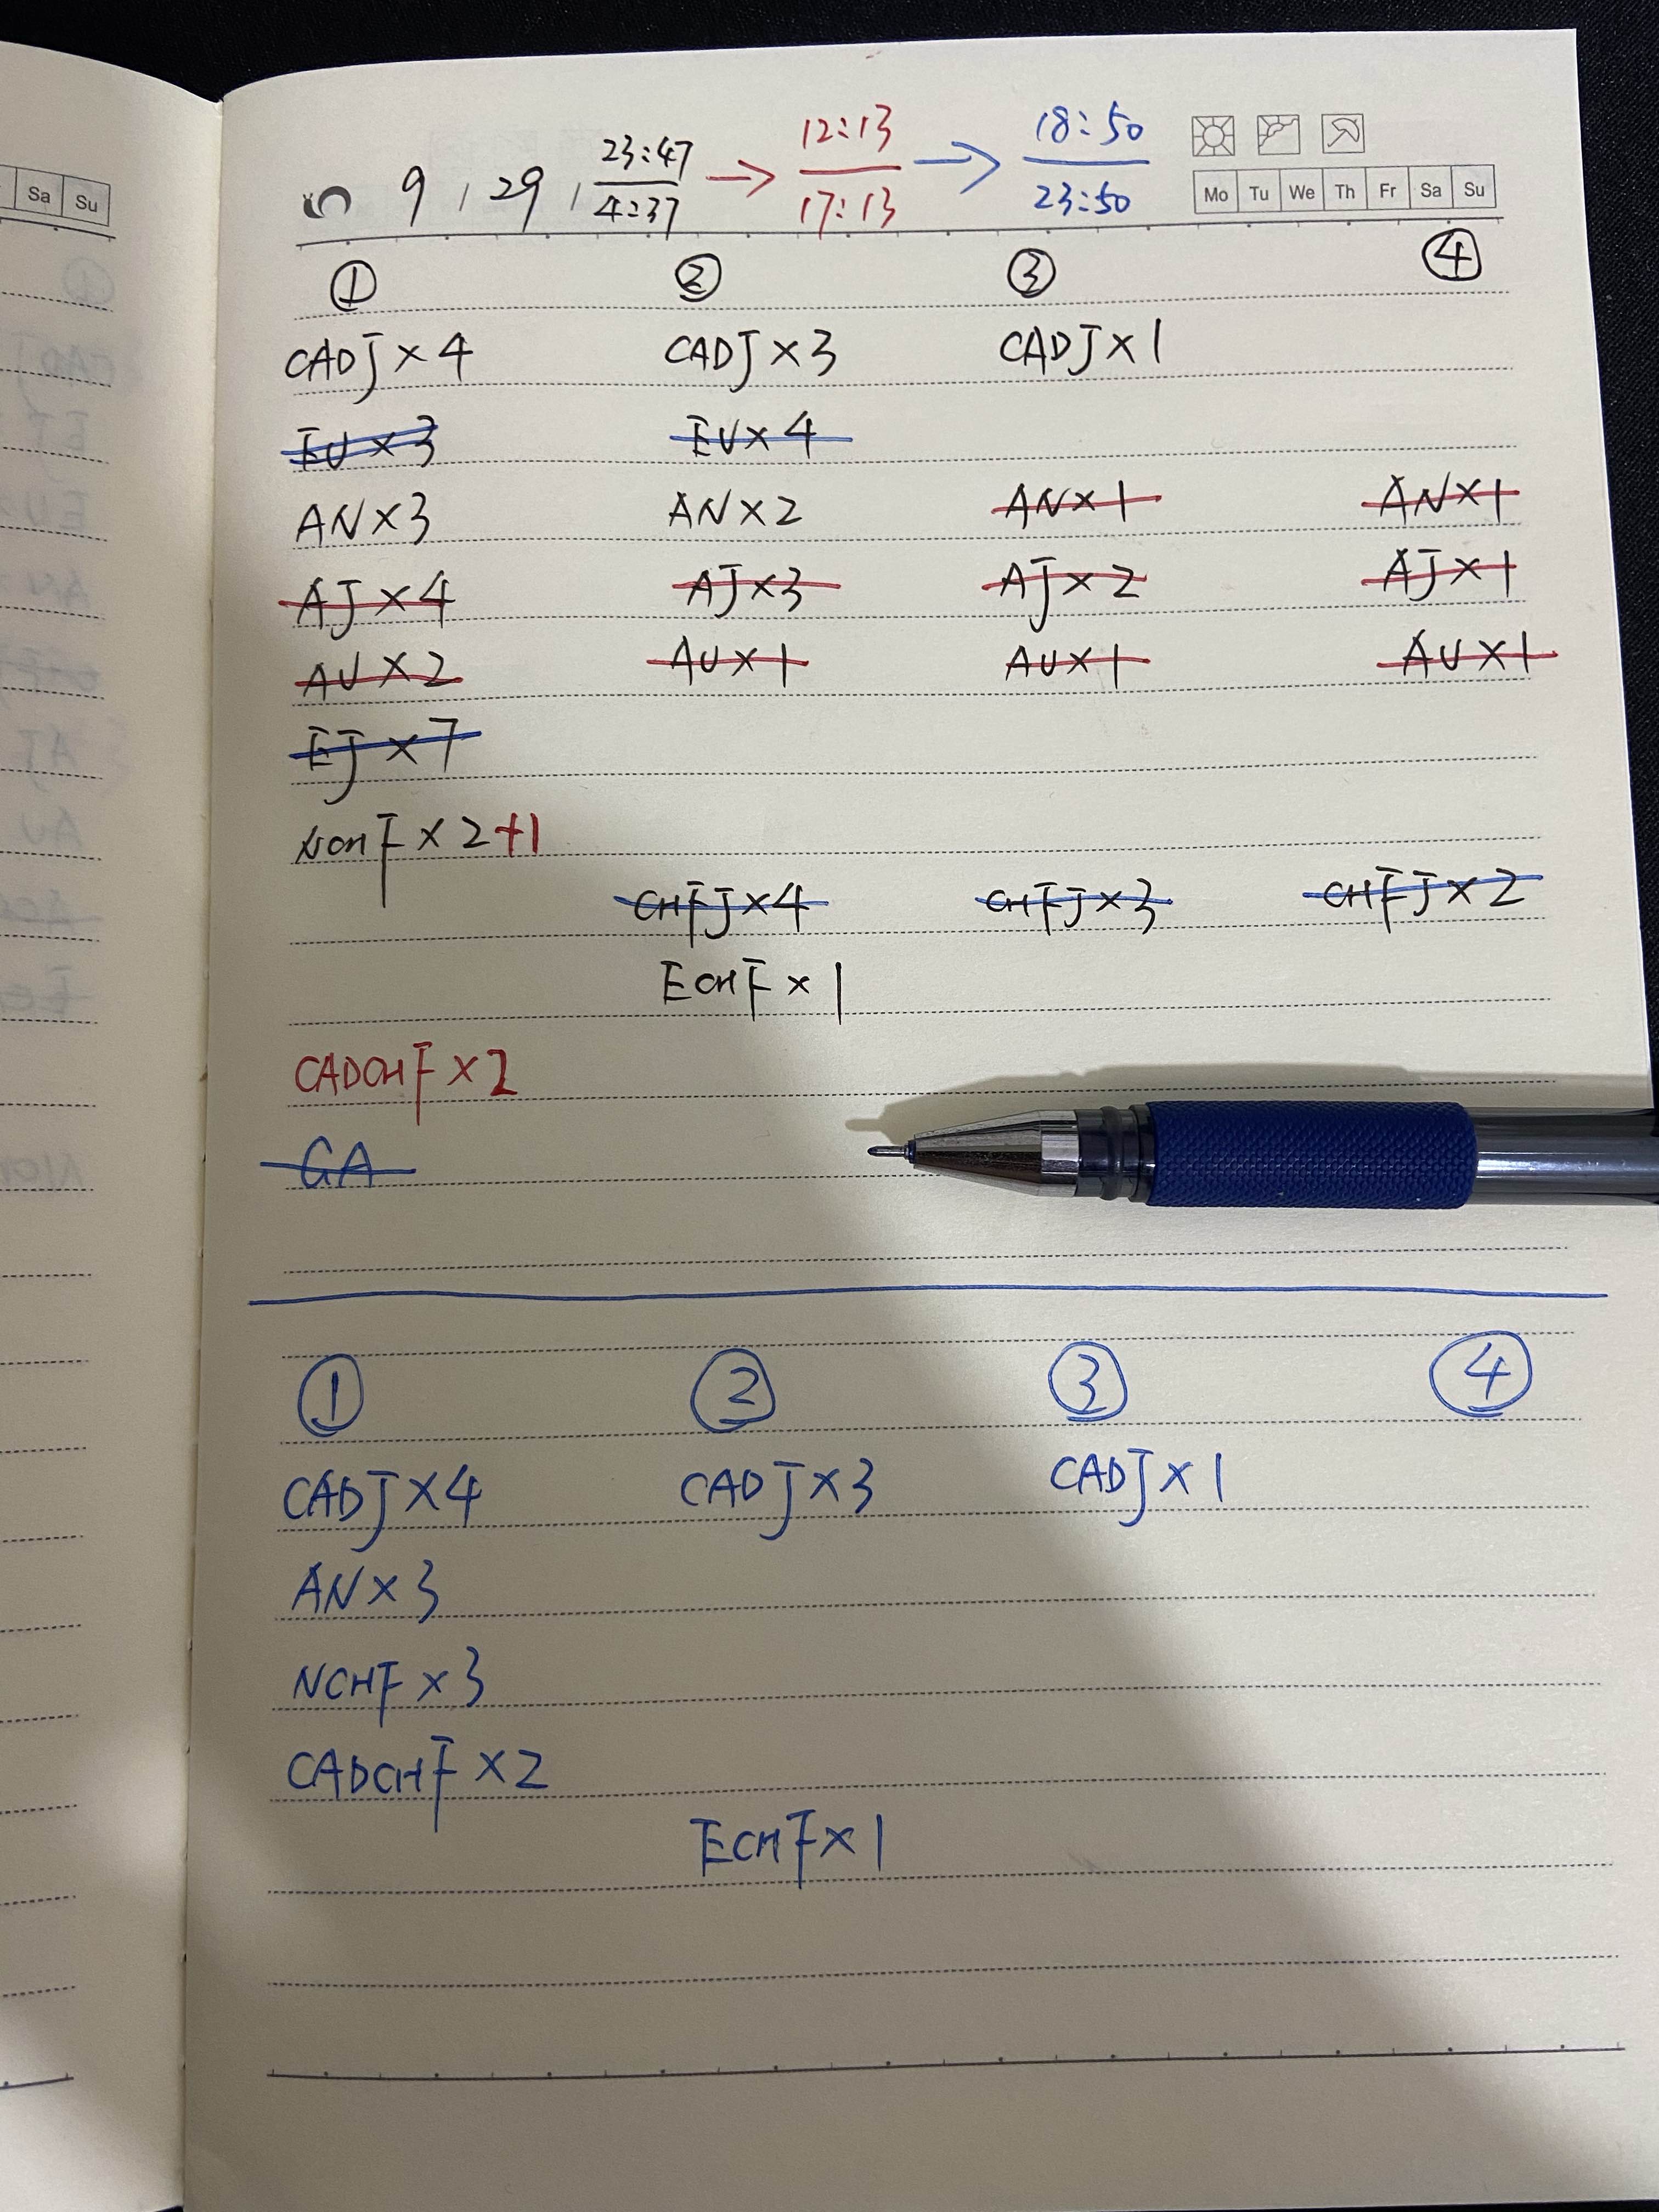 Sa Su
9 , 29 , 23:47 / 4:37 → 12:13 / 17:13 → 18:50 / 23:50
Mo Tu We Th Fr Sa Su
① ② ③ ④
CADJ×4 CADJ×3 CADJ×1
EU×3 EU×4
AN×3 AN×2 AN×1 AN×1
AJ×4 AJ×3 AJ×2 AJ×1
AU×2 AU×1 AU×1 AU×1
EJ×7
NCHF×2+1
CHFJ×4 CHFJ×3 CHFJ×2
ECHF×1
CADCHF×2
GA
① ② ③ ④
CADJ×4 CADJ×3 CADJ×1
AN×3
NCHF×3
CADCHF×2
ECHF×1